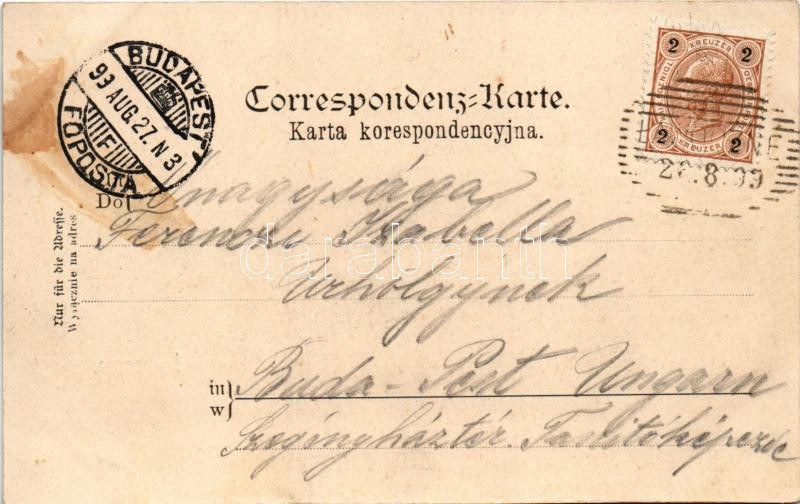 BUDAPEST
99 AUG. 27. N 3
F
FŐPOSTA
Correspondenz-Karte.
Karta korespondencyjna.
2 KREUZER 2
2 KREUZER 2
26.8.99
Nur für die Adresse.
Wyłącznie na adres
Do Őnagysága
Ferenczi Izabella
Urhölgynek
in
w
Buda-Pest Ungarn
Szegényháztér. Tanítóképezde
darabanth